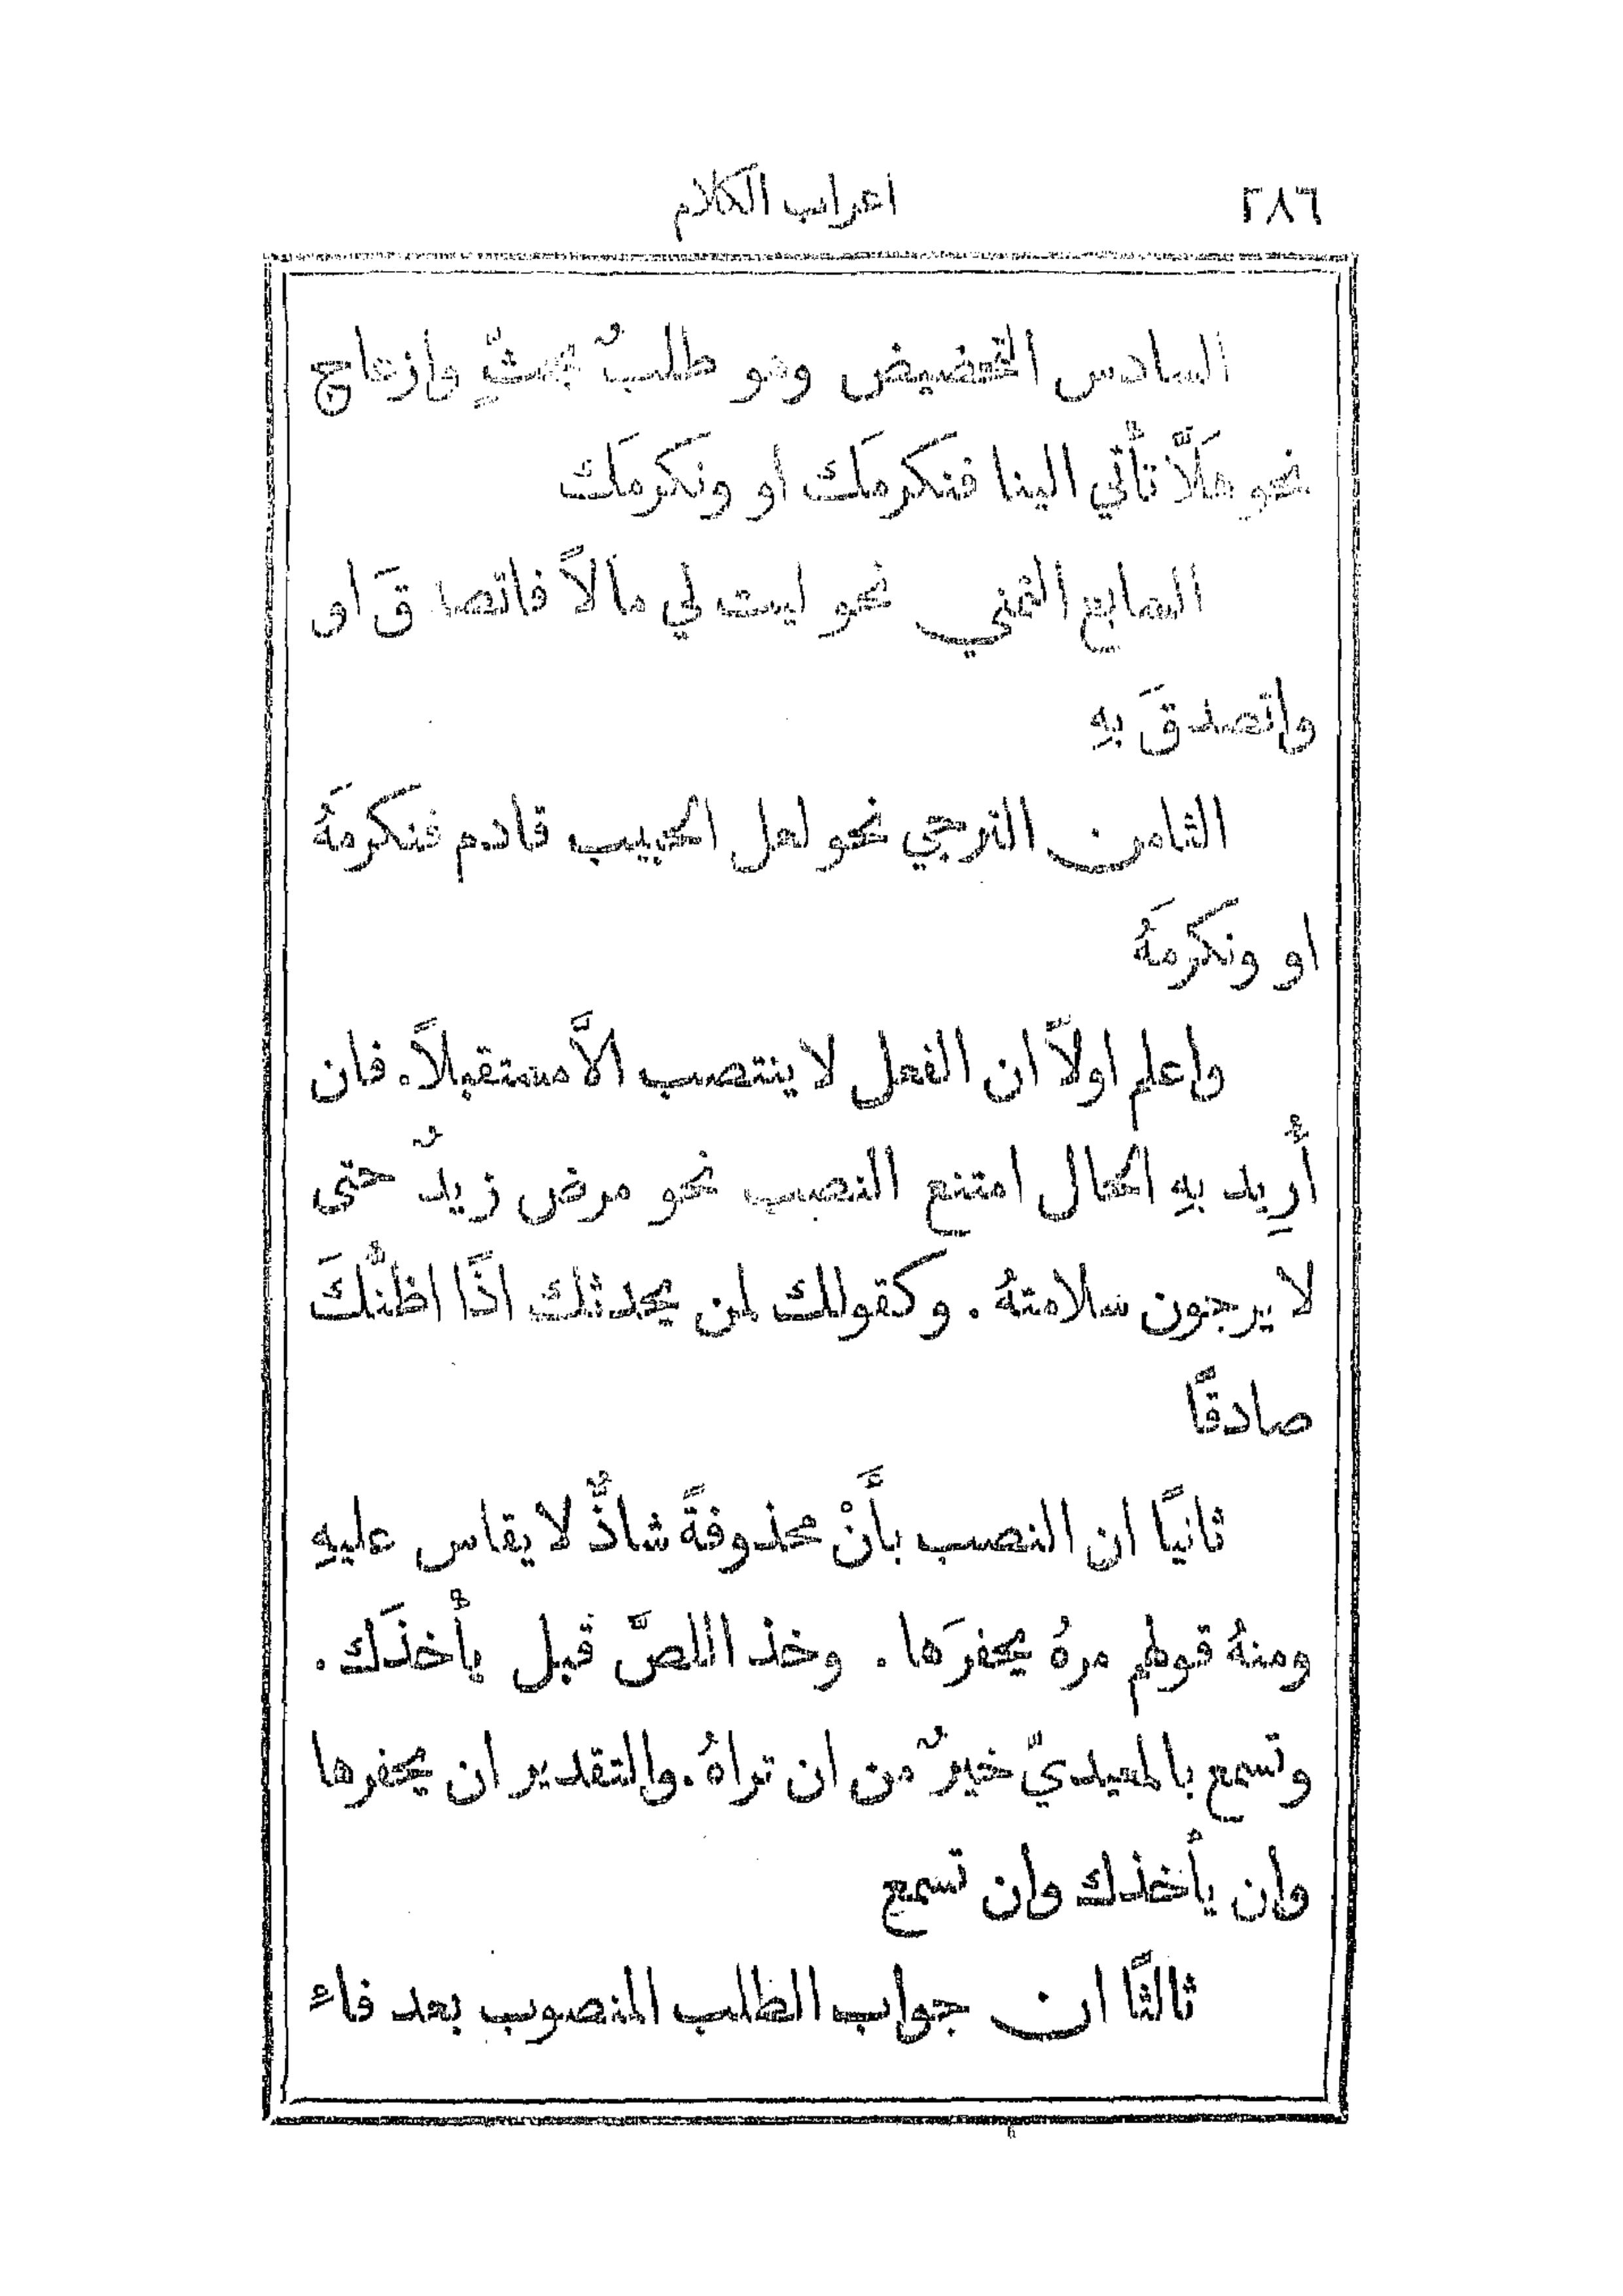 ٢٨٦
اعراب الكلام
السادس التحضيض وهو طلبٌ بحثٍّ وازعاجٍ
نحو هَلَّا تأْتي الينا فنكرمَك او ونكرمَك
السابع التمني نحو ليت لي مالاً فاتصدقَ او
واتصدقَ بهِ
الثامن الترجي نحو لعل الحبيب قادم فنكرمَهُ
او ونكرمَهُ
واعلم اولاً ان الفعل لا ينتصب الاَّ مستقبلاً. فان
أُرِيد بهِ الحال امتنع النصب نحو مرض زيدٌ حتى
لا يرجون سلامتهُ. وكقولك لمن يحدثك اذًا اظنُّكَ
صادقًا
ثانيًا ان النصب بأَنْ محذوفةً شاذٌّ لا يقاس عليهِ
ومنهُ قولهم مرهُ يحفرَها. وخذ اللصَّ قبل يأْخذَك.
وتسمع بالمعيديّ خيرٌ من ان تراهُ. والتقدير ان يحفرها
وان يأْخذك وان تسمع
ثالثًا ان جواب الطلب المنصوب بعد فاءِ